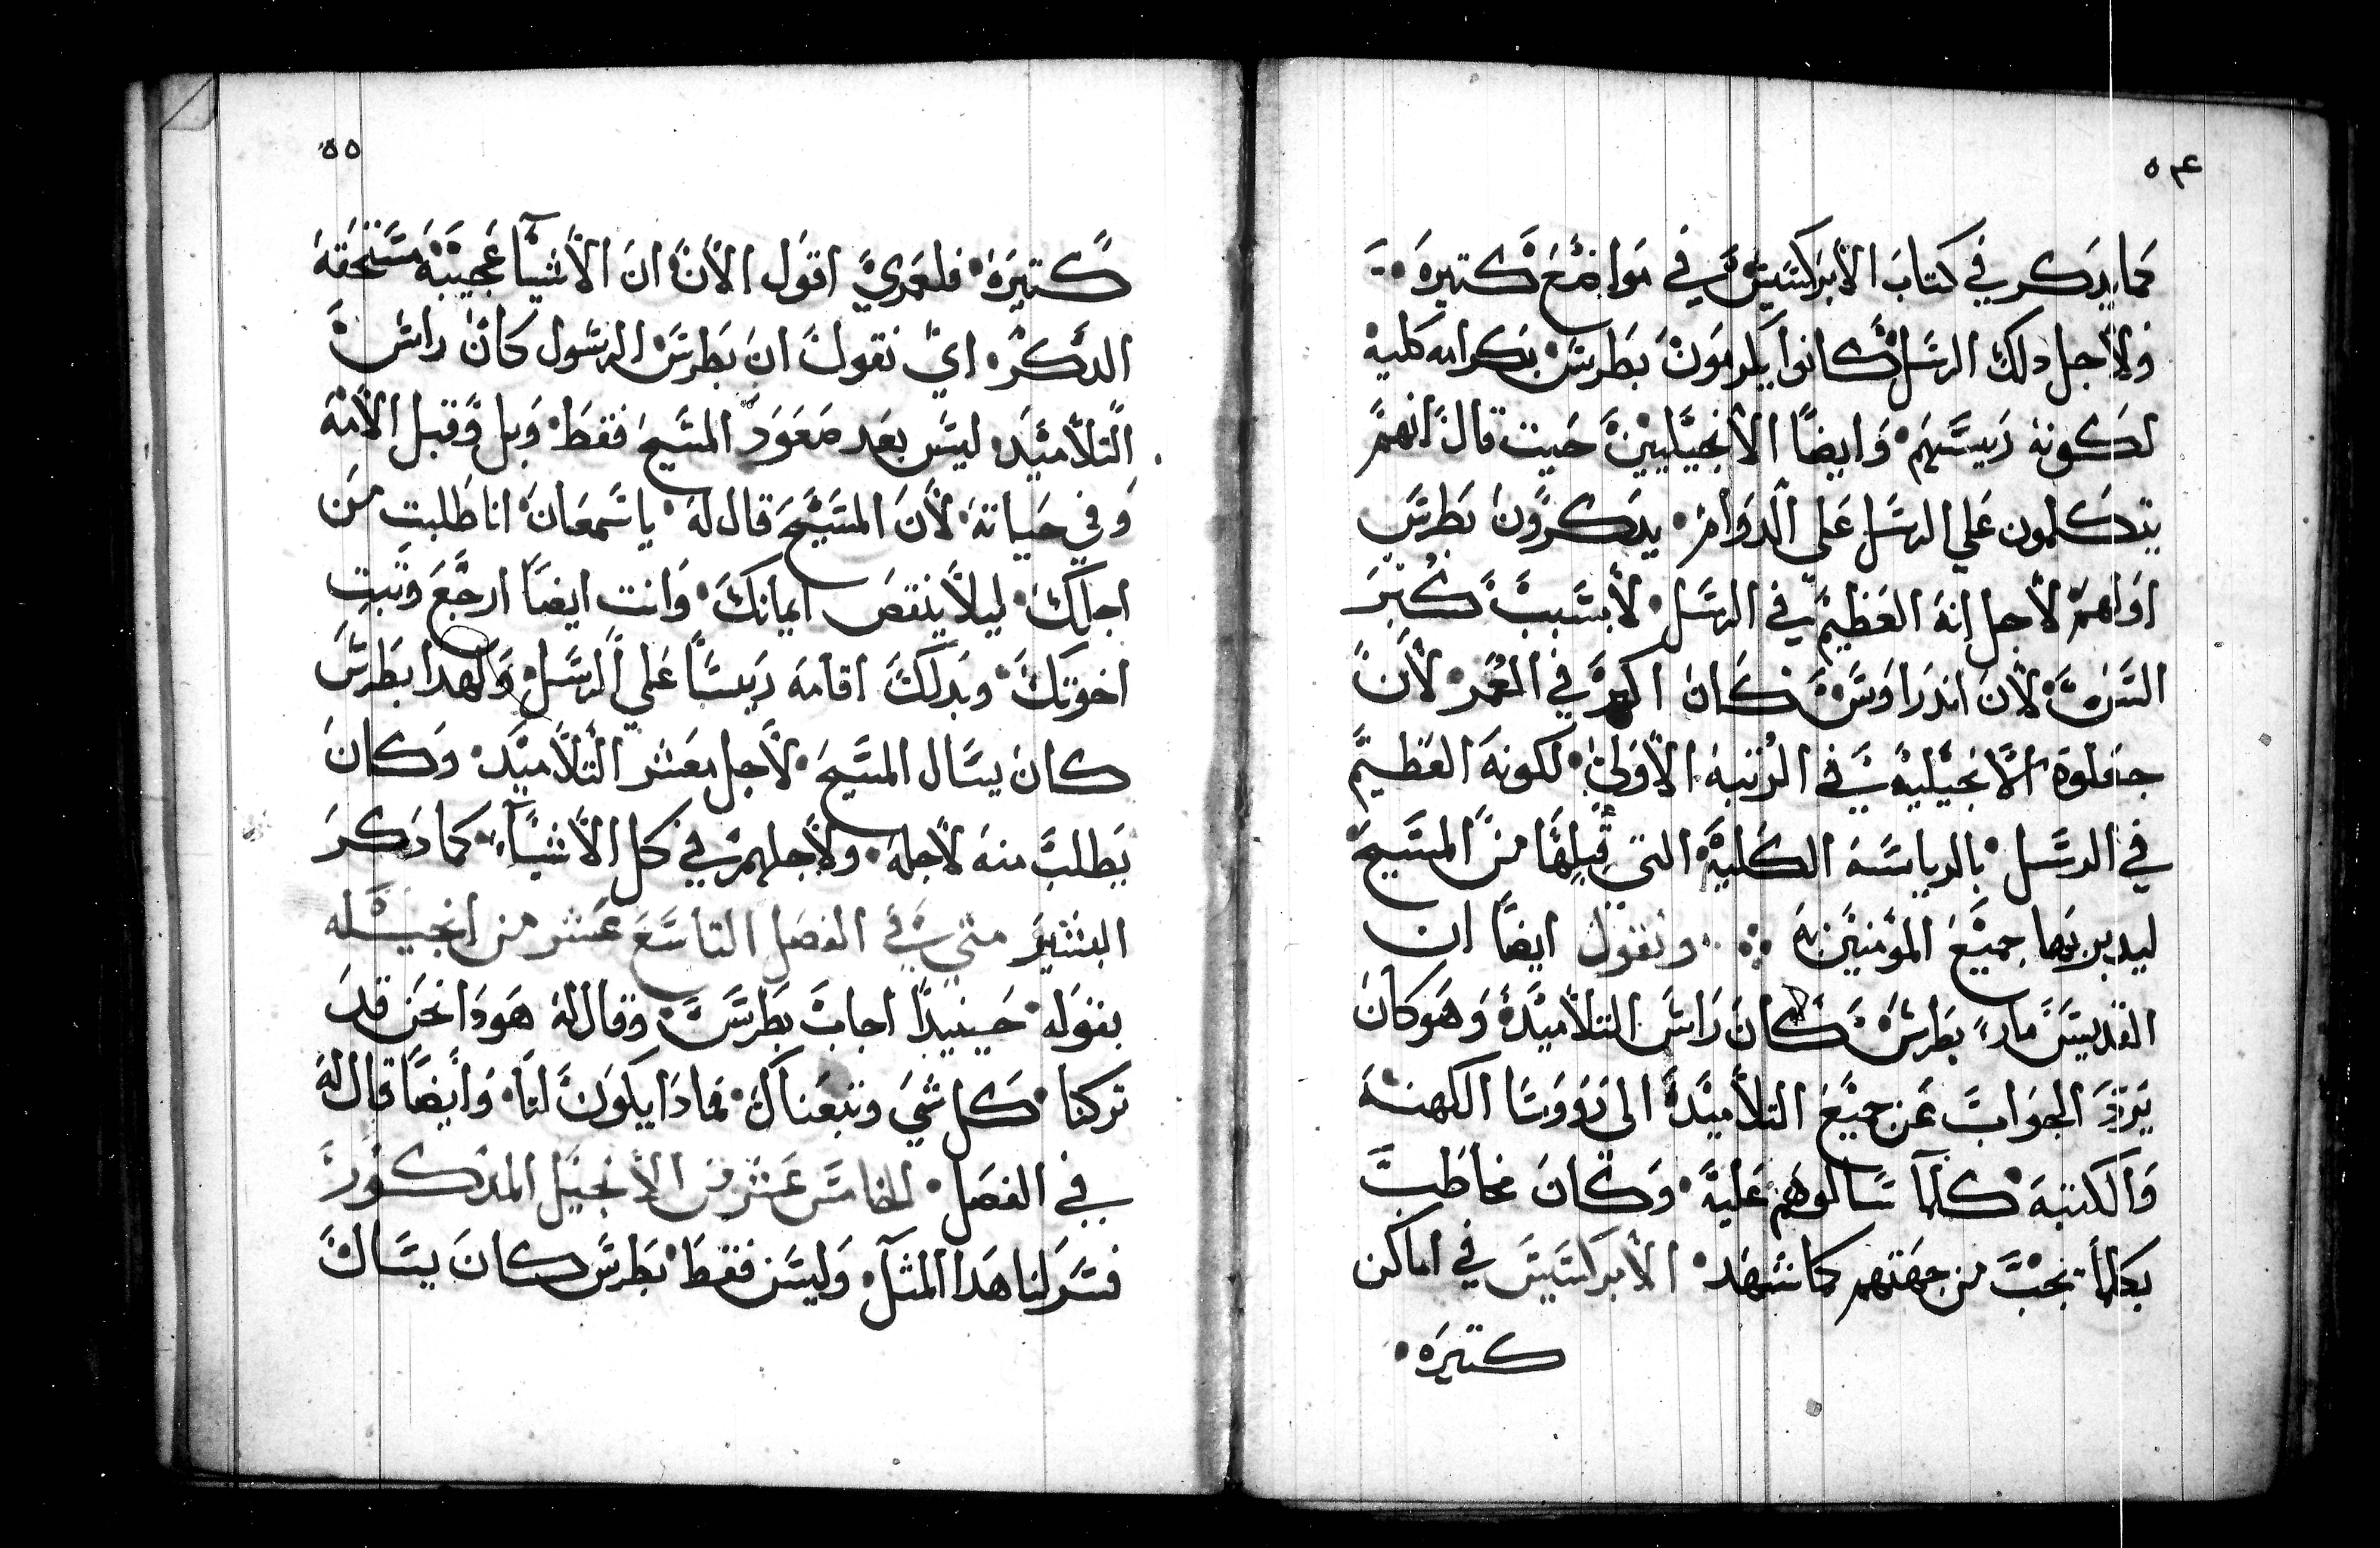 ٥٤
كما يدكر في كتاب الابركسيس في مواضع كتيره
ولاجل دلك الرسل كانوا يكرمون بطرس بكرامه كليه
لكونه رييسهم وايضًا الانجيليين حيت قال انهم
يتكلمون علي الرسل علي الدوام يدكرون بطرس
اولهم لاجل انه العظيم في الرسل لا بسبب كبر
السن لان اندراوس كان اكبر في العمر لان
جعلوه الانجيليين في الرتبه الاولي لكونه العظيم
في الرسل بالرياسه الكليه التي قبلها من المسيح
ليدبر بها جميع المومنين به ونقول ايضًا ان
القديس مار بطرس كان راس التلاميد وهو كان
يرد الجواب عن جميع التلاميد الي رووسا الكهنه
والكتبه كلما سالوهم عليه وكان مخاطب
بكلما يجب من جهتهم كما تشهد الابركسيس في اماكن
كتيره
٥٥
كتيره فلعمري اقول الان ان الاشيآ عجيبه مستحقه
الدكر اي نقول ان بطرس الرسول كان راس
التلاميد ليس بعد صعود المسيح فقط وبل وقبل الامه
وفي حياته لان المسيح قال له يا سمعان انا طلبت من
اجلك ليلا ينقص ايمانك وانت ايضًا ارجع وتبت
اخوتك وبدلك اقامه رييسًا علي الرسل ولهدا بطرس
كان يسال المسيح لاجل معشر التلاميد وكان
يطلب منه لاجله ولاجلهم في كل الاشيآء كما دكر
البشير متي في الفصل التاسع عشر من انجيله
بقوله حينيدًا اجاب بطرس وقال له هودا نحن قد
تركنا كل شي وتبعناك فمادا يكون لنا وايضًا قال له
في الفصل الخامس عشر من الانجيل المدكور
فسر لنا هدا المتل وليس فقط بطرس كان يسال